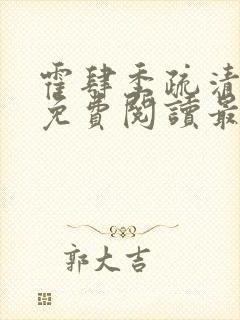 霍肆季疏清
免費閱讀最
郭大吉